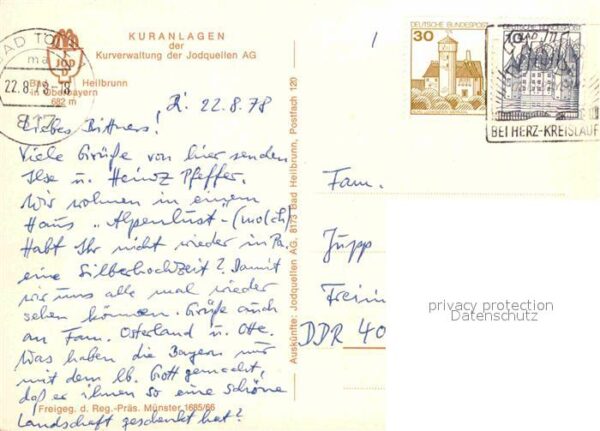 KURANLAGEN
der
Kurverwaltung der Jodquellen AG
BAD TÖLZ
ma
22.8.78-18
817
JOD
Bad Heilbrunn
in Oberbayern
682 m
22.8.78
Liebes Bittners!
Viele Grüße von hier senden
Ilse u. Heinz Pfeffer.
Wir wohnen in einem
Haus „Alpenlust-(molch)
Habt Ihr nicht wieder in Pa.
eine Silberhochzeit? Damit
wir uns alle mal wieder
sehen können. Grüße auch
an Fam. Osterland u. Otte.
Was haben die Bayern nur
mit dem lb. Gott gemacht,
daß er ihnen so eine schöne
Landschaft geschenkt hat?
Freigeg. d. Reg.-Präs. Münster 1685/66
Auskünfte: Jodquellen AG, 8173 Bad Heilbrunn, Postfach 120
DEUTSCHE BUNDESPOST
30
DEUTSCHE BUNDESPOST
10
BAD TÖLZ
BEI HERZ-KREISLAUF
Fam.
Jupp
DDR 40
privacy protection
Datenschutz